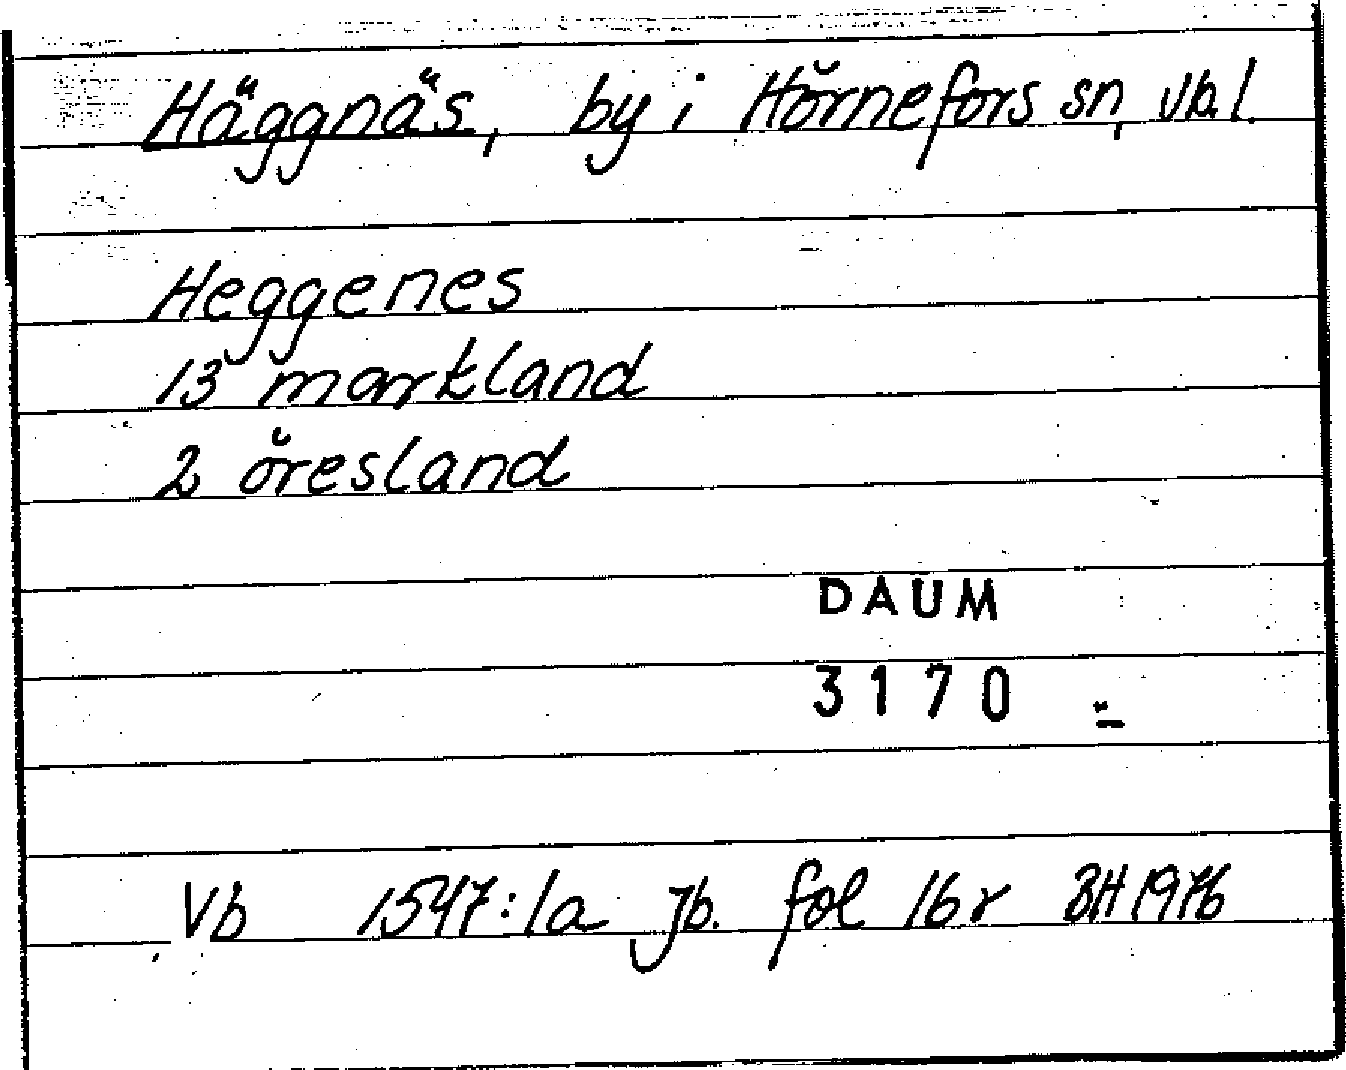 Häggnäs, by i Hörnefors sn, vb.l.
Heggenes
13 markland
2 öresland
DAUM
3170
Vb 1547:1a jb. fol 16r BH 1976